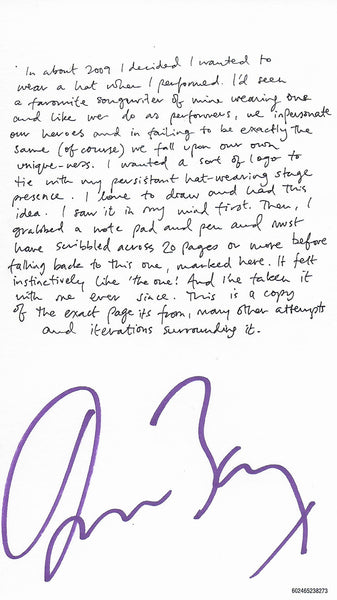 In about 2009 I decided I wanted to
wear a hat when I performed. I'd seen
a favourite songwriter of mine wearing one
and like we do as performers, we impersonate
our heroes and in failing to be exactly the
same (of course) we fall upon our own
unique-ness. I wanted a sort of logo to
tie with my persistant hat-wearing stage
presence. I love to draw and had this
idea. I saw it in my mind first. Then, I
grabbed a note pad and pen and must
have scribbled across 20 pages or more before
falling back to this one, marked here. It felt
instinctively like 'the one'! And I've taken it
with me ever since. This is a copy
of the exact page its from, many other attempts
and iterations surrounding it.
602465238273